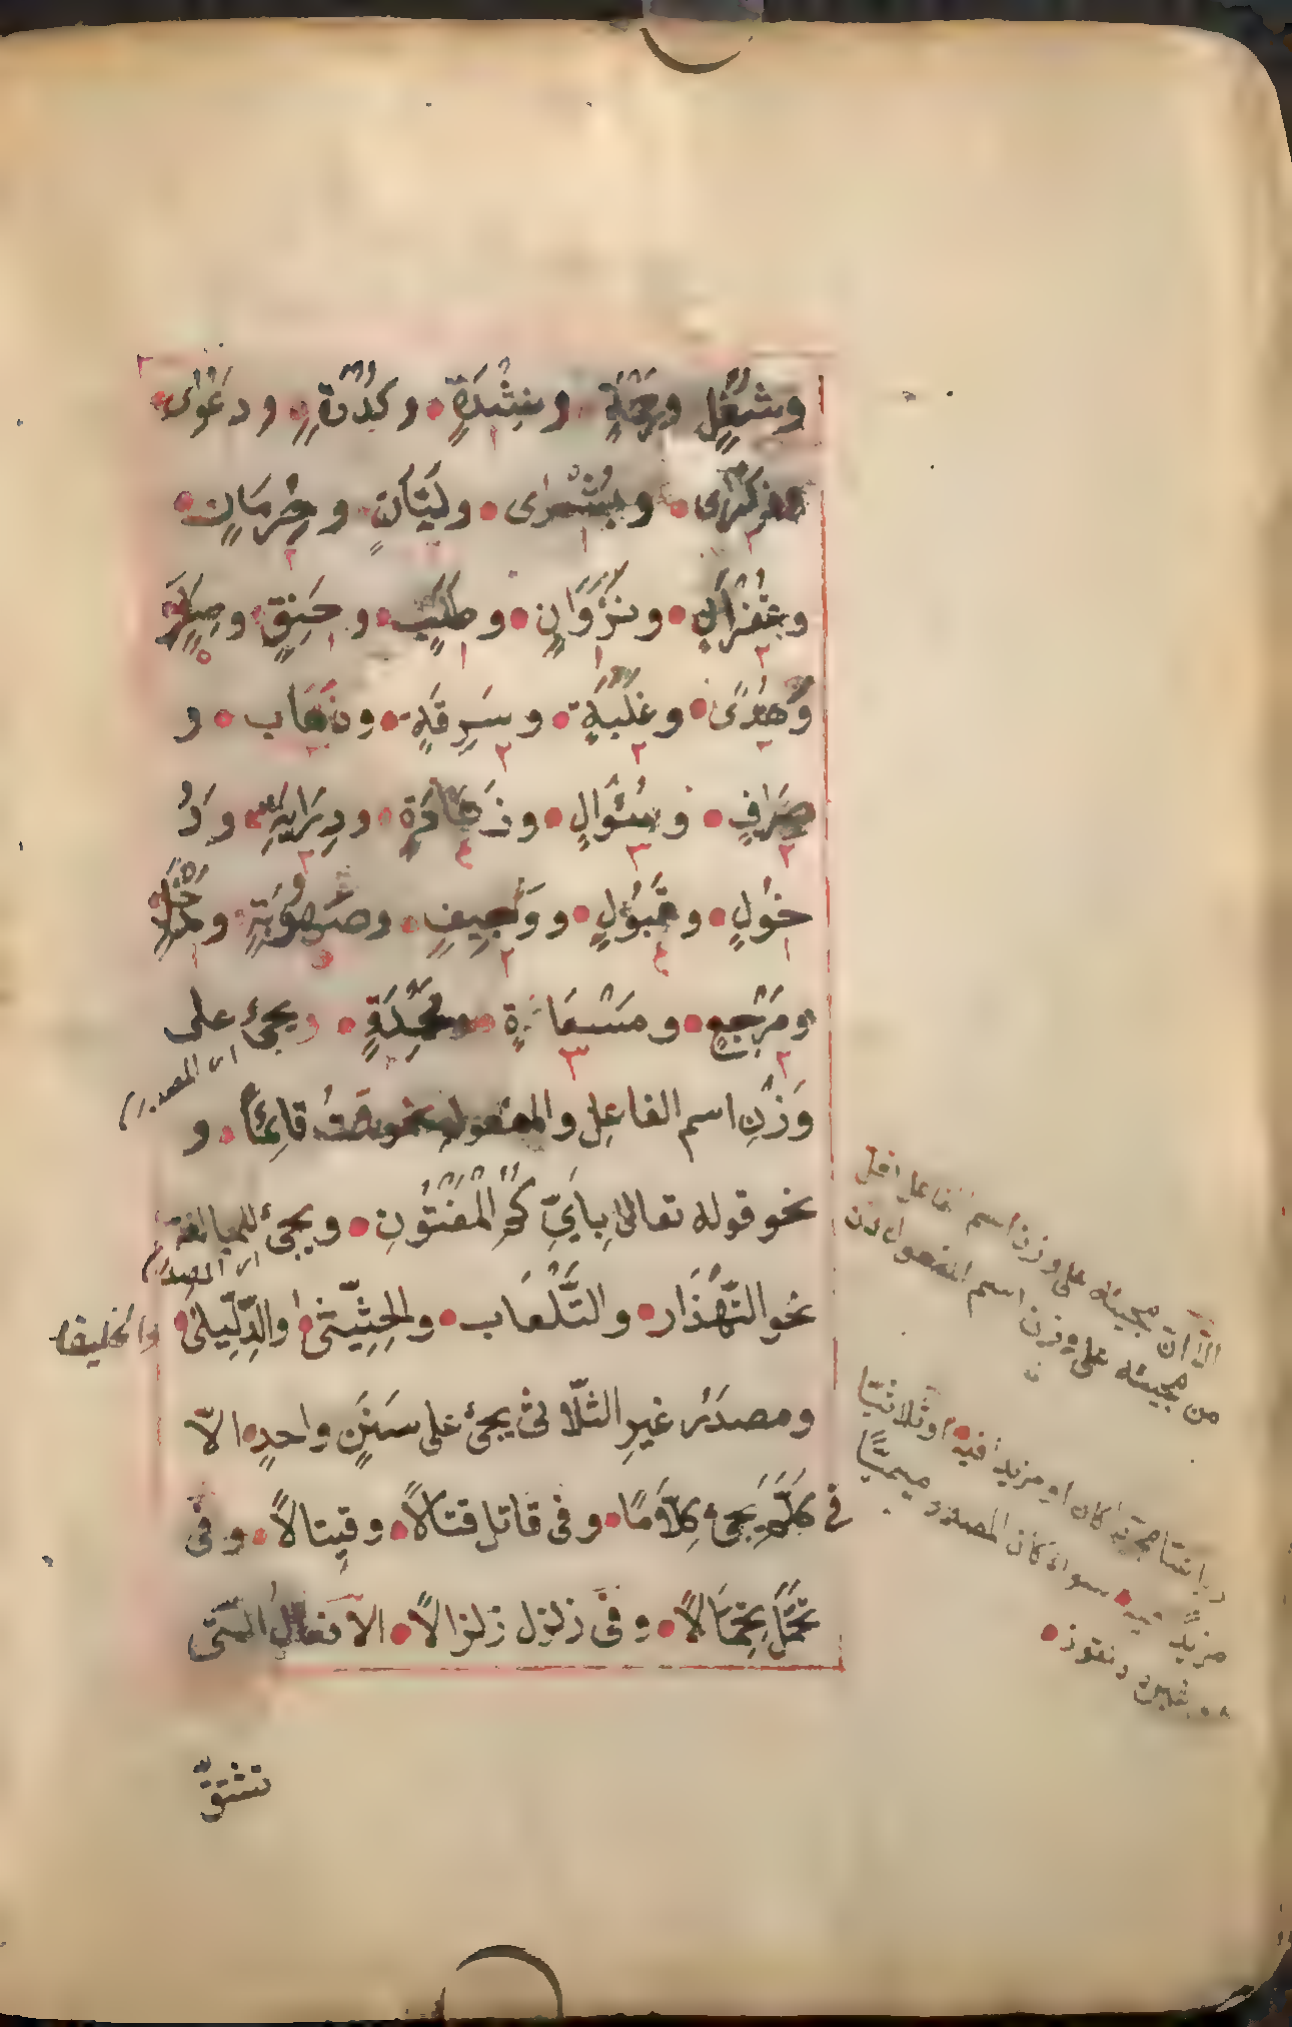 وشُغْلٍ ورَحْمَةٍ ونِشْدَةٍ وكُدْرَةٍ ودَعْوٰى
وذِكْرٰى وبُشْرٰى ولَيَّانٍ وحِرْمَانٍ
وغُفْرَانٍ ونَزَوَانٍ وطَلَبٍ وخَنِقٍ وصِغَرٍ
وهُدًى وغَلَبَةٍ وسَرِقَةٍ وذَهَاب و
صِرَافٍ وسُؤَالٍ وزَهَادَةٍ ودِرَايَةٍ ودُ
خُولٍ وقَبُولٍ ووَجِيفٍ وصُهُوبَةٍ ومَدْخَلٍ
ومَرْجِعٍ ومَسْعَاةٍ ومَحْمِدَةٍ ويجئ على
اى المصدر
وَزْنِ اسم الفاعِلِ والمفعول نحو قمتُ قائِمًا و
نحو قوله تعالى بِاَيِّكُمُ الْمَفْتُونِ ويجئ للمبالغة
اى المصدر
نحو التَّهْذَار والتَّلْعَاب والحِثِّيثٰى والدِّلِّيلٰى
والخليفا
ومصدَرُ غيرِ الثّلاثى يجئ على سَنَنٍ واحدٍ الاّ
فى كَلَّمَ يَجئ كِلاَّمًا وفى قاتل قتالاً وقيتالاً وفى
تَحَمَّلَ تِحِمَّالاً وفى زلزل زلزالاً الافعالُ الّتى
تشتقّ
الاّ انّ مجيئه على وزن اسم الفاعل اقل
من مجيئه على وزن اسم المفعول
كان او مزيدا فيه او ثلاثيّا
مزيدً فيه سواء كان المصدر ميميّا